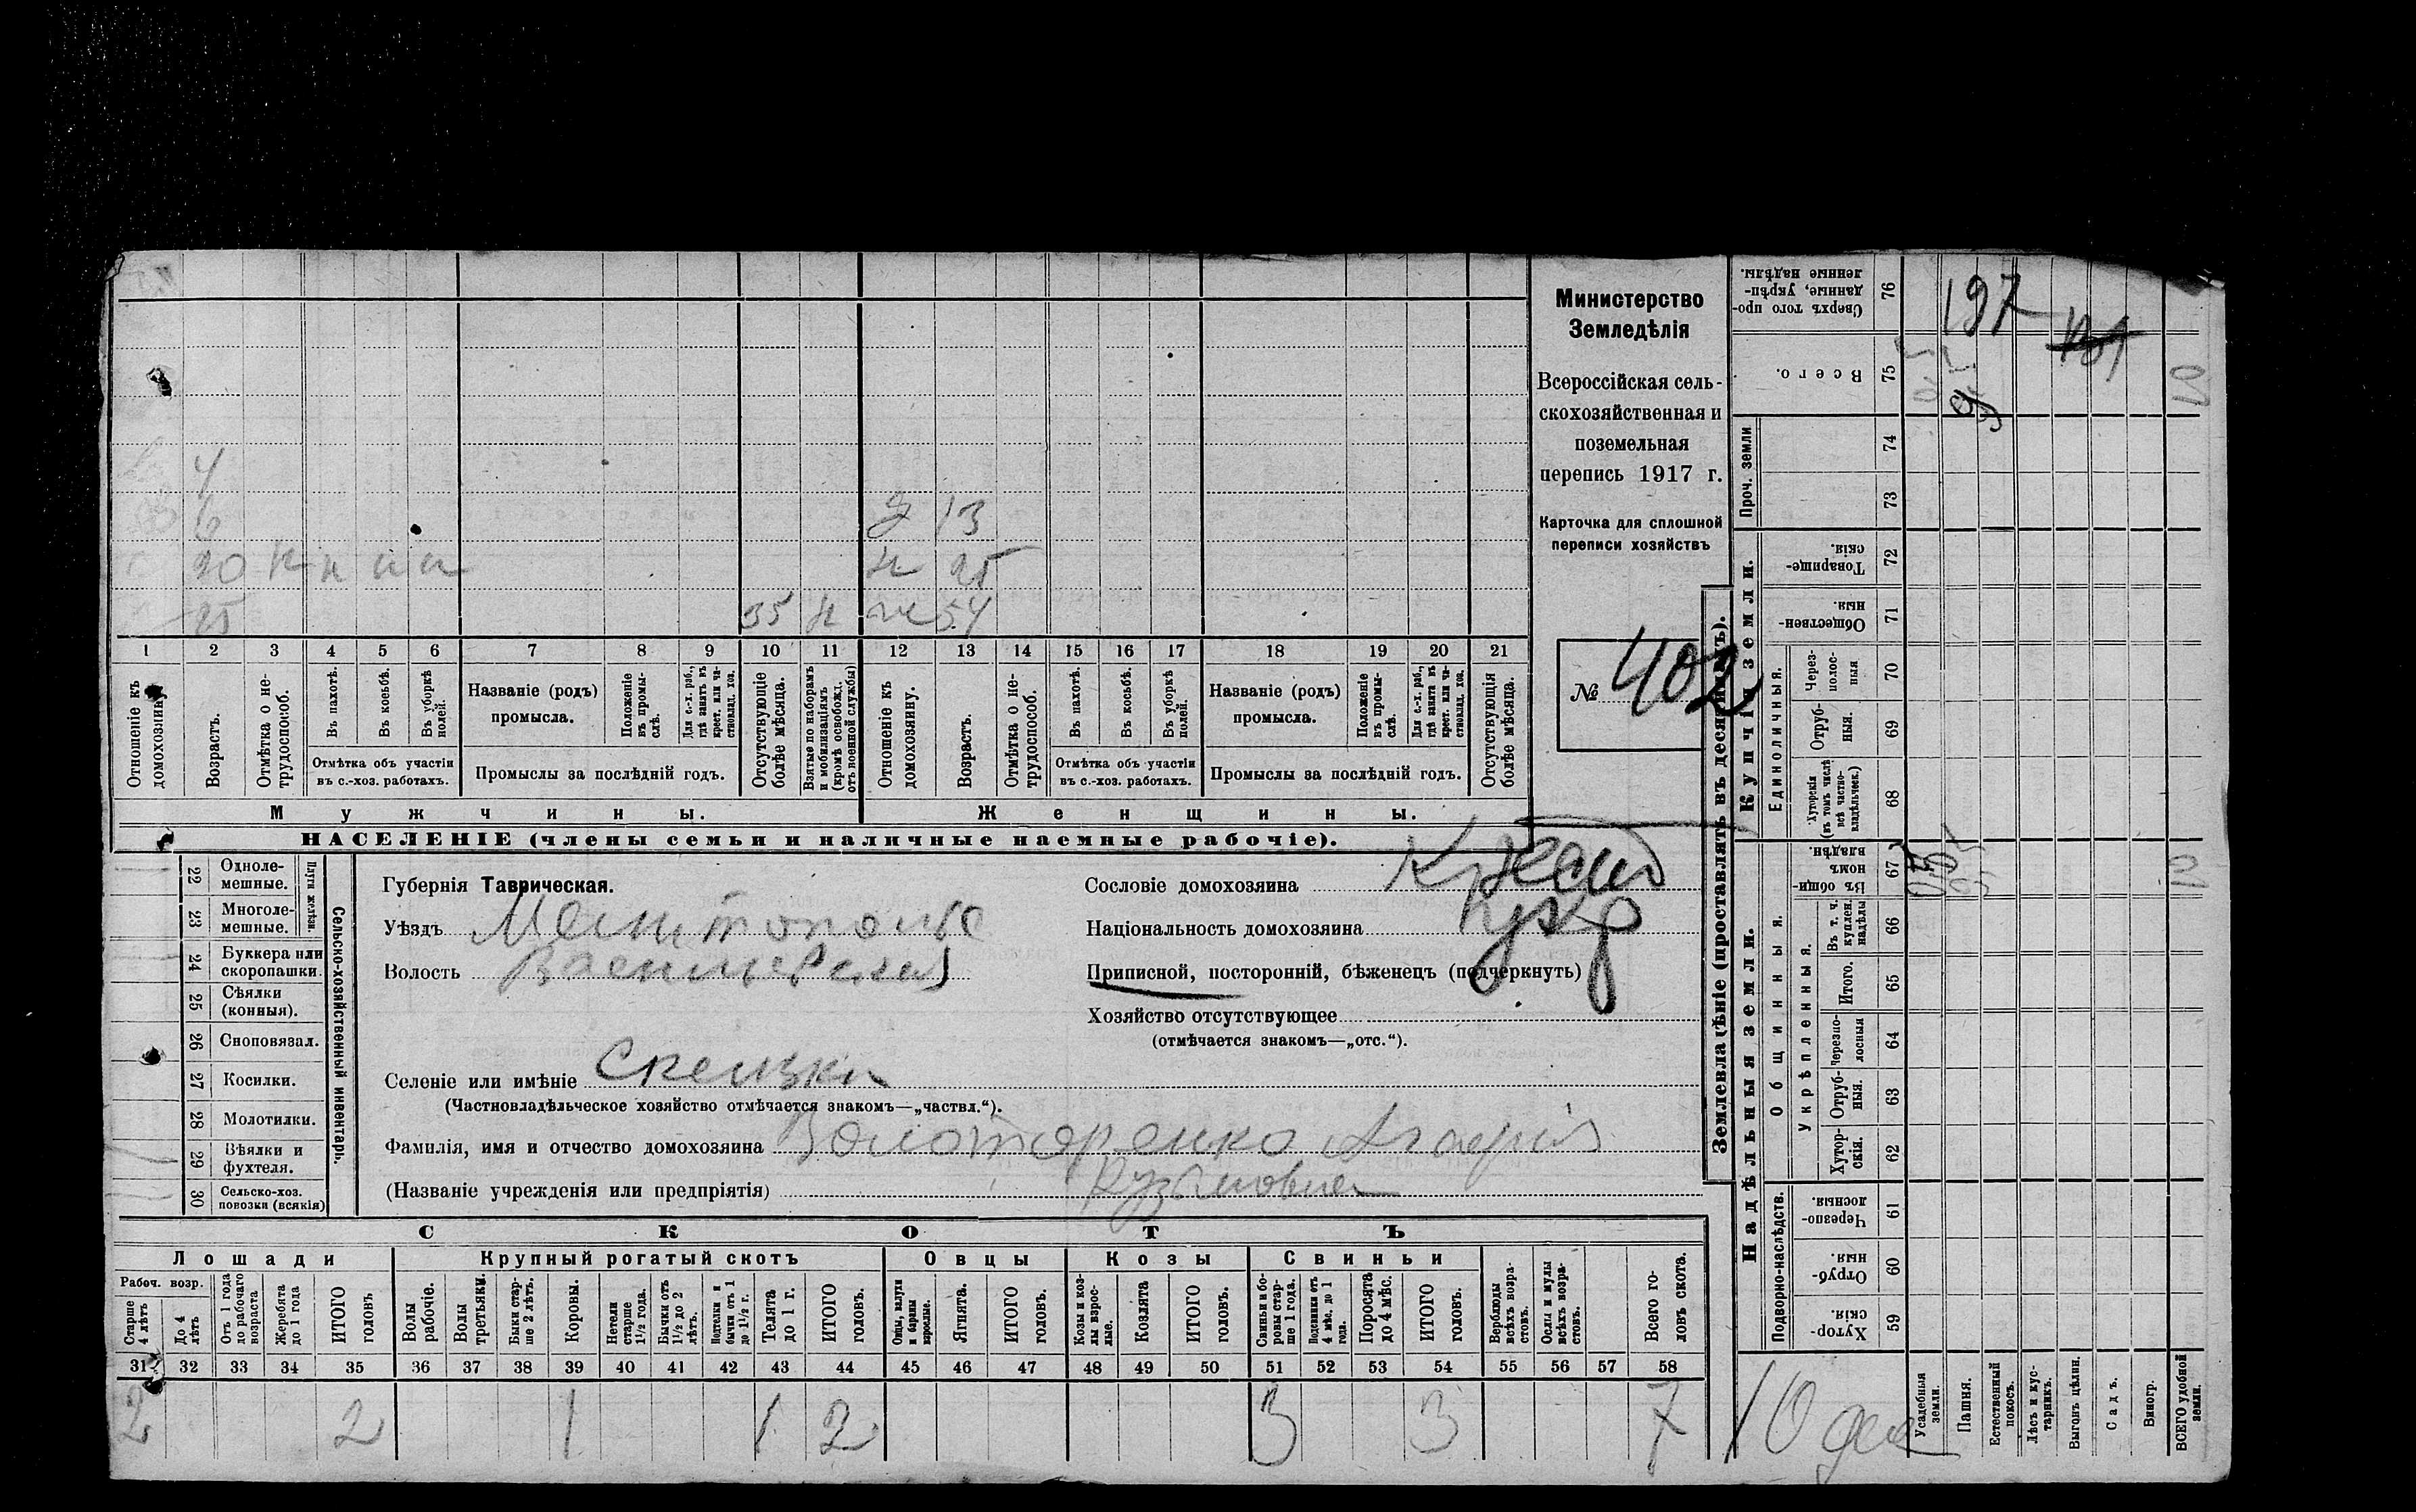 Министерство
Земледѣлія
Всероссійская сель-
скохозяйственная и
поземельная
перепись 1917 г.
Карточка для сплошной
переписи хозяйствъ
№ 402
4
6
20 н н н н
25 35
13
25
54
1 2 3 4 5 6 7 8 9 10 11 12 13 14 15 16 17 18 19 20 21
Отношеніе къ домохозяину.
Возрастъ.
Отмѣтка о не-трудоспособ.
Въ пахотѣ.
Въ косьбѣ.
Въ уборкѣ полей.
Отмѣтка объ участіи въ с.-хоз. работахъ.
Названіе (родъ) промысла.
Положеніе въ промы-слѣ.
Для с.-х. раб., гдѣ занятъ въ крест. или ча-стновлад. хоз.
Промыслы за послѣдній годъ.
Отсутствующіе болѣе мѣсяца.
Взятые по наборамъ и мобилизаціямъ (кромѣ освобожд. отъ военной службы)
Отношеніе къ домохозяину.
Возрастъ.
Отмѣтка о не-трудоспособ.
Въ пахотѣ.
Въ косьбѣ.
Въ уборкѣ полей.
Отмѣтка объ участіи въ с.-хоз. работахъ.
Названіе (родъ) промысла.
Положеніе въ промы-слѣ.
Для с.-х. раб., гдѣ занята въ крест. или ча-стновлад. хоз.
Промыслы за послѣдній годъ.
Отсутствующія болѣе мѣсяца.
Мужчины.
Женщины.
НАСЕЛЕНІЕ (члены семьи и наличные наемные рабочіе).
22 Одноле-мешные.
23 Многоле-мешные.
Плуги желѣзн.
24 Буккера или скоропашки.
25 Сѣялки (конныя).
26 Сноповязал.
27 Косилки.
28 Молотилки.
29 Вѣялки и фухтеля.
30 Сельско-хоз. повозки (всякія)
Сельско-хозяйственный инвентарь.
Губернія Таврическая.
Уѣздъ
Волость
Селеніе или имѣніе Скельки
(Частновладѣльческое хозяйство отмѣчается знакомъ—„частвл.“).
Фамилія, имя и отчество домохозяина Золотаренко
(Названіе учрежденія или предпріятія) Кузьмовна
Сословіе домохозяина Крест
Національность домохозяина Укр
Приписной, посторонній, бѣженецъ (подчеркнуть)
Хозяйство отсутствующее
(отмѣчается знакомъ—„отс.“).
СКОТЪ
Лошади
Крупный рогатый скотъ
Овцы
Козы
Свиньи
Рабоч. возр.
Старше 4 лѣтъ
До 4 лѣтъ
Отъ 1 года до рабочаго возраста
Жеребята до 1 года
ИТОГО головъ
Волы рабочіе.
Волы третьяки.
Быки стар-ше 2 лѣтъ.
Коровы.
Нетели старше 1½ года.
Бычки отъ 1½ до 2 лѣтъ.
Подтелки и бычки отъ 1 до 1½ г.
Телята до 1 г.
ИТОГО головъ.
Овцы, валухи и бараны взрослые.
Ягнята.
ИТОГО головъ.
Козы и коз-лы взрос-лые.
Козлята
ИТОГО головъ.
Свиньи и бо-ровы стар-ше 1 года.
Подсвинки отъ 4 мѣс. до 1 года.
Поросята до 4 мѣс.
ИТОГО головъ.
Верблюды всѣхъ возра-стовъ.
Ослы и мулы всѣхъ возра-стовъ.
Всего го-ловъ скота.
31 32 33 34 35 36 37 38 39 40 41 42 43 44 45 46 47 48 49 50 51 52 53 54 55 56 57 58
2 2 1 1 2 3 3 7
Землевладѣніе (проставлять въ десятинахъ).
Купчія земли.
Надѣльныя земли.
76 Сверхъ того про-данные, укрѣп-ленные надѣлы.
197
75 Всего.
Проч. земли
74
73
72 Товарище-скія.
71 Обществен-ныя.
Единоличныя.
70 Через-полос-ныя
69 Отруб-ныя.
68 Хуторскія (въ томъ числѣ всѣ частно-владѣльческ.)
Общинныя.
67 Въ общин-номъ владѣн.
Укрѣпленныя.
66 Въ т. ч. куплен. надѣлы
65 Итого.
64 Черезпо-лосныя
63 Отруб-ныя.
62 Хутор-скія.
Подворно-наслѣдств.
61 Черезпо-лосныя.
60 Отруб-ныя.
59 Хутор-скія.
Усадебныя земли.
Пашня.
Естественный покосъ.
Лѣсъ и кус-тарникъ.
Выгонъ цѣлин.
Садъ.
Виногр.
ВСЕГО удобной земли.
10 дес